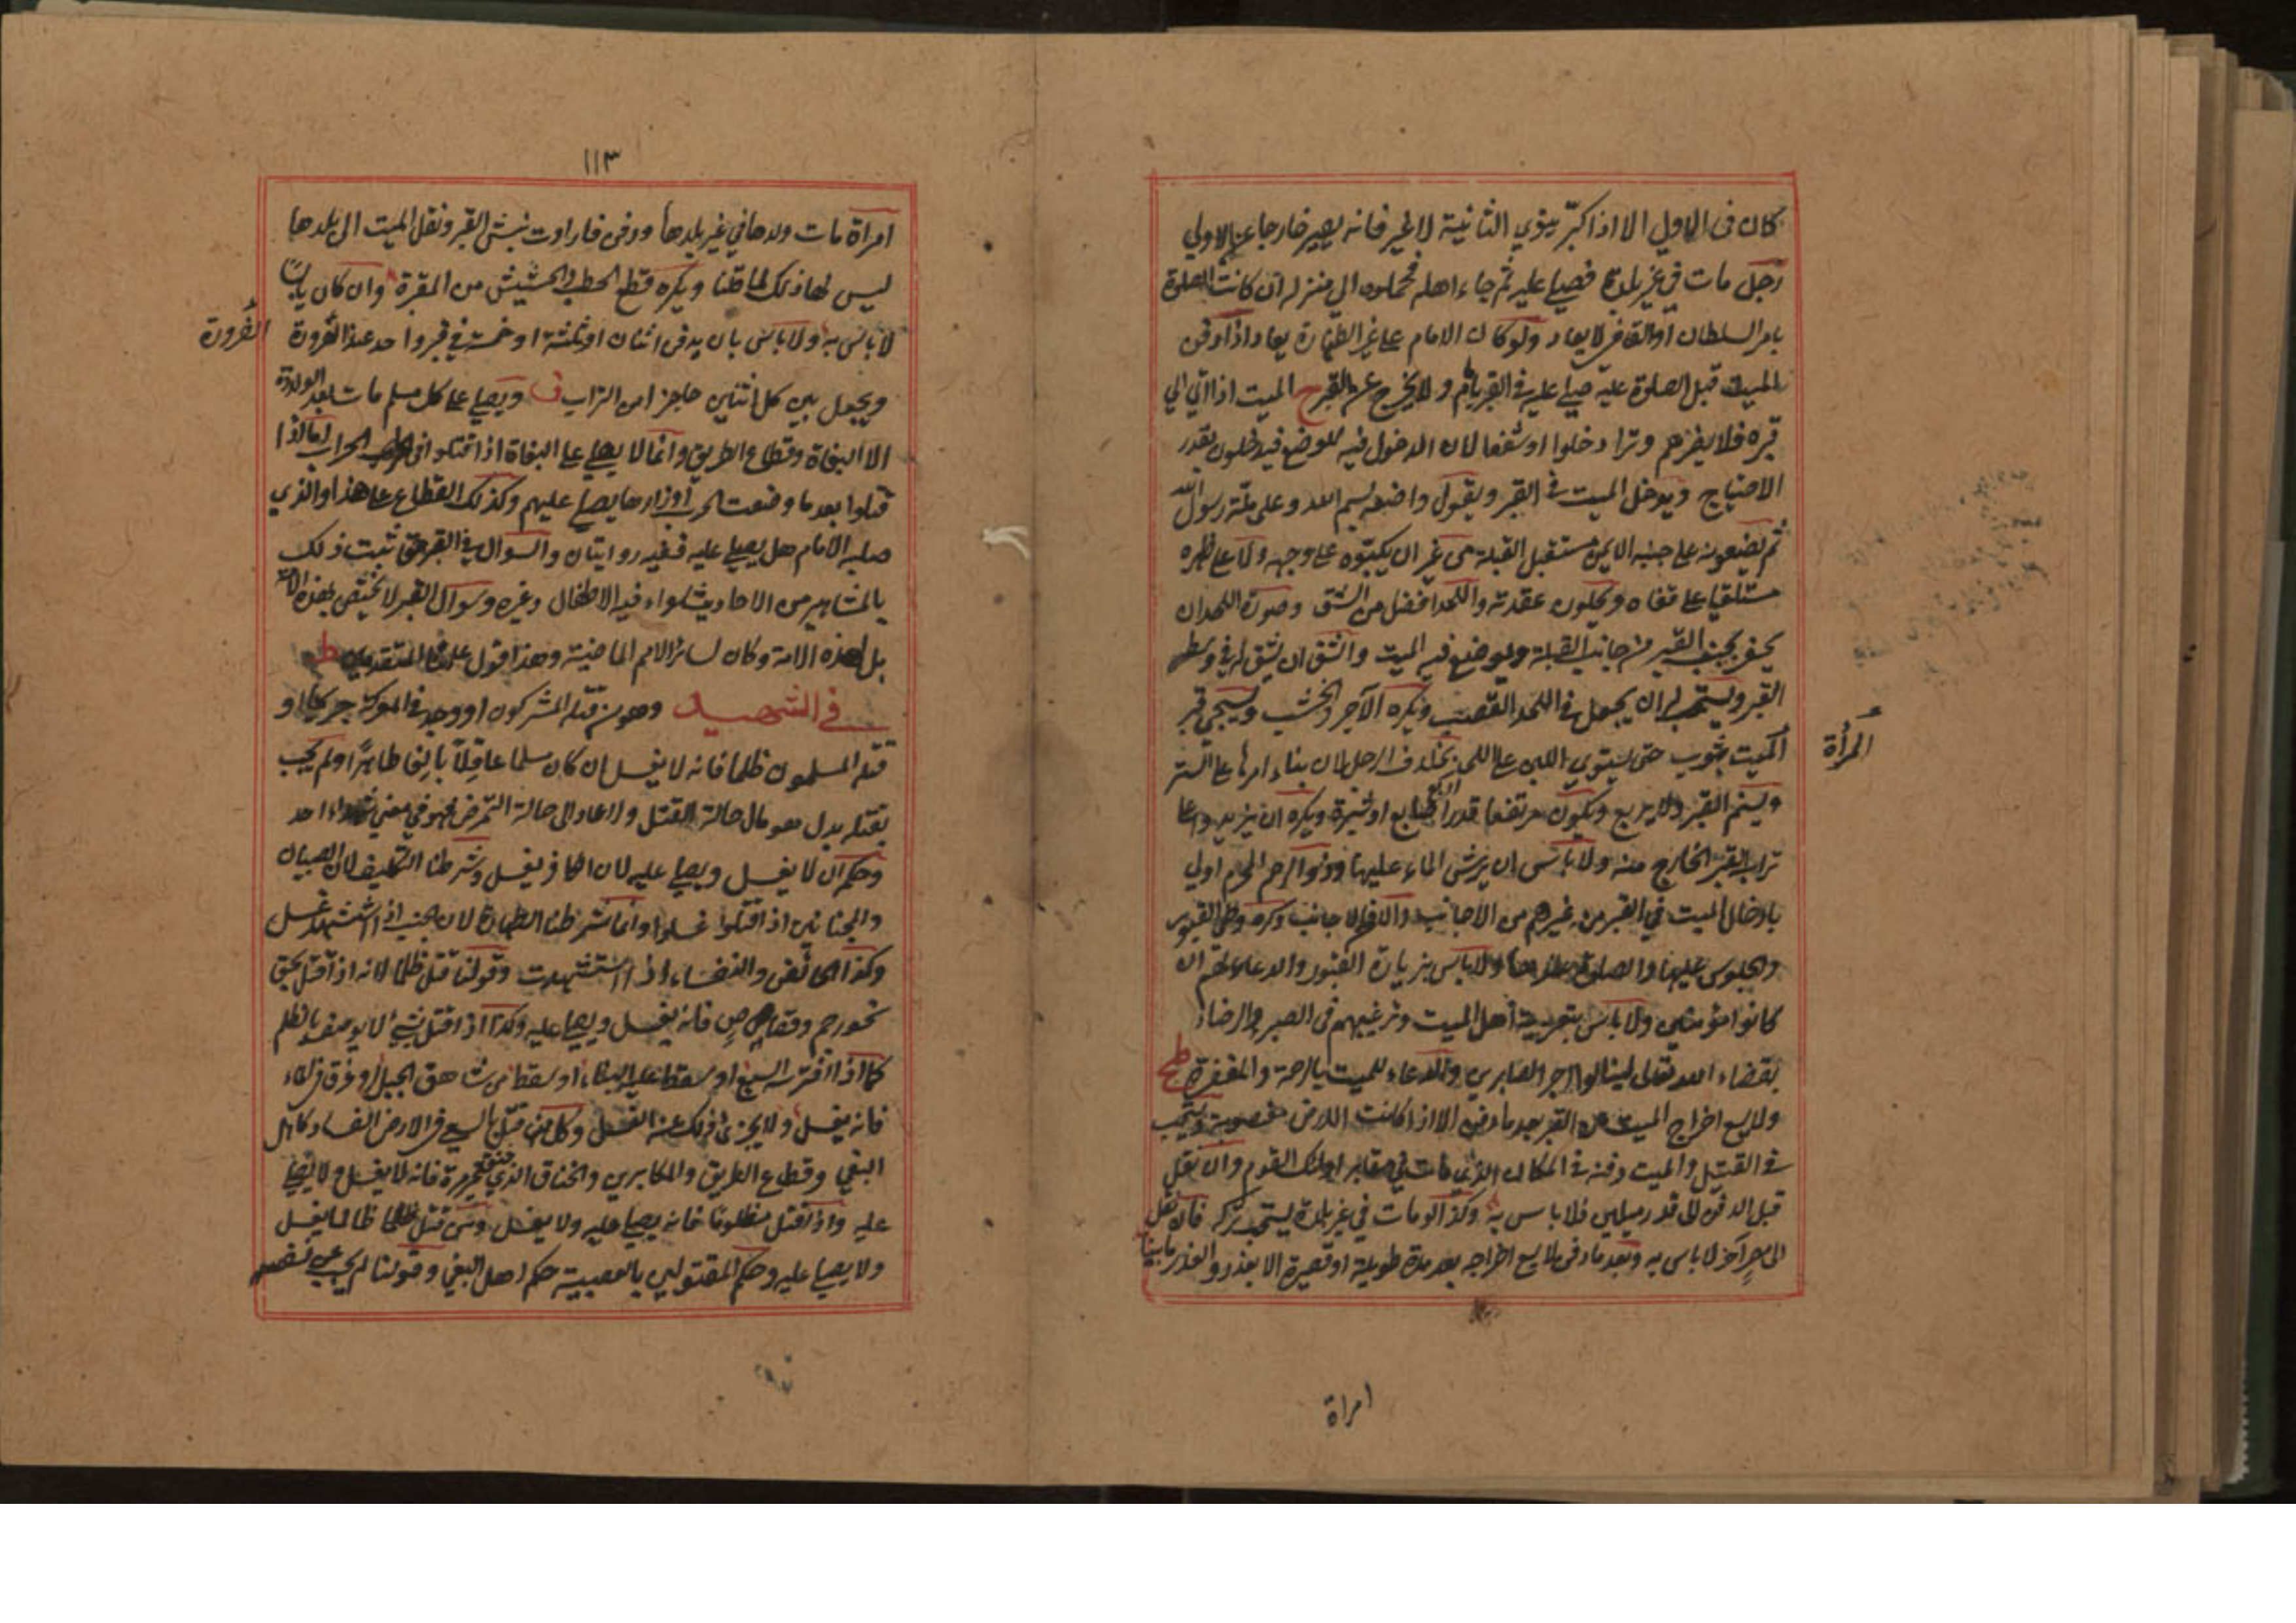 كان في الاول الا اذا كبّر ينوي الثانية لا غير فانه يصير خارجا عن الاولي
رجل مات في غير بلدة فصلي عليه ثم جاء اهله فحملوه الي منزله ان كانت الصلوة
بامر السلطان او القاضي لا يعاد ولو كان الامام علي غير الطهارة يعاد واذا دفن
الميت قبل الصلوة عليه صلي عليه في القبر ولا يخرج عن القبر ح الميت اذا اتي الي
قبره فلا يضرهم وترا دخلوا او شفعا لان الدخول فيه للوضع فيدخلون بقدر
الاحتياج ويدخل الميت في القبر ويقول واضعه بسم الله وعلى ملّة رسول الله
ثم يضعونه علي جنبه الايمن مستقبل القبلة من غير ان يكبّوه علي وجهه ولا علي ظهره
مستلقيا علي قفاه ويحلون عقدته واللحد افضل من الشق وصورة اللحد ان
يحفر بجنب القبر من جانب القبلة ويوضع فيه الميت والشق ان يشق له في وسط
القبر ويستحب ان يجعل في اللحد القصب ويكره الآجر والخشب ويسجي قبر
الميت بثوب حتى يستوي اللبن علي اللحد بخلاف الرجل لان بناء امرها علي الستر
المرأة
ويسنم القبر ولا يربع ويكون مرتفعا قدر اربع اصابع او شبرة ويكره ان يزيد علي
تراب القبر الخارج منه ولا باس ان يرش الماء عليها وذو الرحم المحرم اولي
بادخال الميت في القبر من غيرهم من الاجانب وكره وطي القبور
والجلوس عليها والصلوة عندها ولا باس بزيارة القبور والدعاء لهم ان
كانوا مؤمنين ولا باس بتعزية أهل الميت وترغيبهم في الصبر والرضاء
بقضاء الله تعالى لينالوا اجر الصابرين والدعاء للميت بالرحمة والمغفرة
ولا يسع اخراج الميت من القبر بعد ما دفن الا اذا كانت الارض مغصوبة ويستحب
في القتيل والميت دفنه في المكان الذي مات في مقابر اولئك القوم وان نقل
قبل الدفن الى قدر ميلين فلا باس به وكذا لو مات في غير بلدة يستحب تركه فان نقل
الى مصر آخر لا باس به وبعد ما دفن لا يسع اخراجه بعد مدة طويلة او قصيرة الا بعذر والعذر ما بينا
امراة
١١٣
امرأة مات ولدها في غير بلدها ودفن فارادت نبش القبر ونقل الميت الى بلدها
ليس لها ذلك لما قلنا ويكره قطع الحطب والحشيش من المقبرة وان كان يابسًا
لا باس به ولا باس بان يدفن اثنان او ثلثة او خمسة في قبر واحد عند الضرورة
الضرورة
ويجعل بين كل اثنين حاجز من التراب ف ويصلي علي كل مسلم مات بعد الولادة
الا البغاة وقطاع الطريق وانما لا يصلي علي البغاة اذا قتلوا في الحراب اما اذا
قتلوا بعد ما وضعت الحرب أوزارها يصلي عليهم وكذلك القطاع علي هذا والذي
صلبه الامام هل يصلي عليه ففيه روايتان والسوال في القبر حق ثبت ذلك
بالمشاهير من الاحاديث سواء فيه الاطفال وغيره وسوال القبر لا يختص بهذه الامة
بل لهذه الامة وكان لسائر الامم الماضية وهذا قول المتقدمين ط
في الشهيد وهو من قتله المشركون او وجد في المعركة جريحا او
قتله المسلمون ظلما فانه لا يغسل ان كان مسلما عاقلاً بالغا طاهرًا ولم يجب
بقتله بدل هو مال حالة القتل ولا عاد الى حالة التمرض فهو في معني شهداء احد
وحكم ان لا يغسل ويصلي عليه لان الكافر يغسل وشرطنا التكليف لان الصبيان
والمجنانين اذا قتلوا غسلوا وانما شرطنا الطهارة لان الجنب اذا استشهد غسل
وكذا الحائض والنفساء اذا استشهدت وقولنا قتل ظلما لانه اذا قتل بحق
نحو رجم وقصاص فانه يغسل ويصلي عليه وكذا اذا قتل بشيء لا يوصف بالظلم
كما اذا افترسه السبع او سقط عليه البناء او سقط من شاهق الجبل او غرق في الماء
فانه يغسل ولا يجزئ ذلك عن الغسل وكل من قتل بالسعي في الارض الفساد كاهل
البغي وقطاع الطريق والمكابرين والخناق الذي خنق غير مرة فانه لا يغسل ولا يصلي
عليه واذا قتل مظلوما فانه يصلي عليه ولا يغسل ومن قتل ظالما يغسل
ولا يصلي عليه وحكم المقتولين بالعصبية حكم اهل البغي وقولنا لم يجب عن نفسه